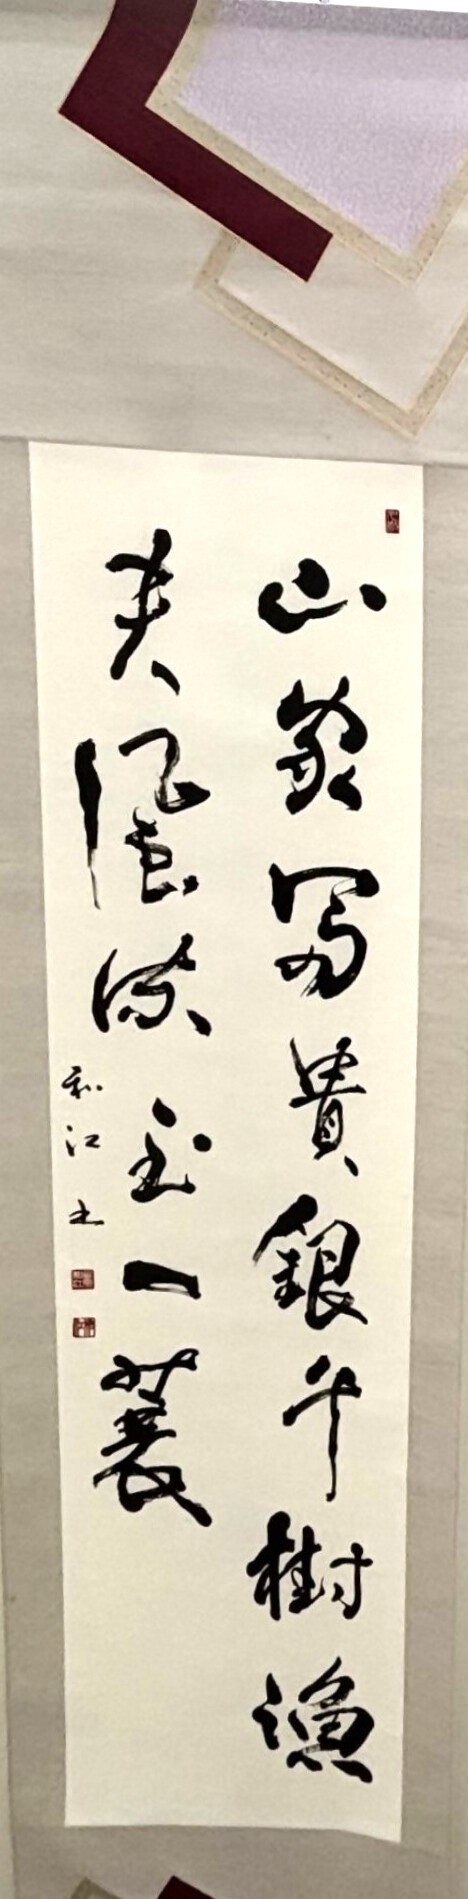 山家富貴銀千樹漁
夫風流玉一蓑
和江書